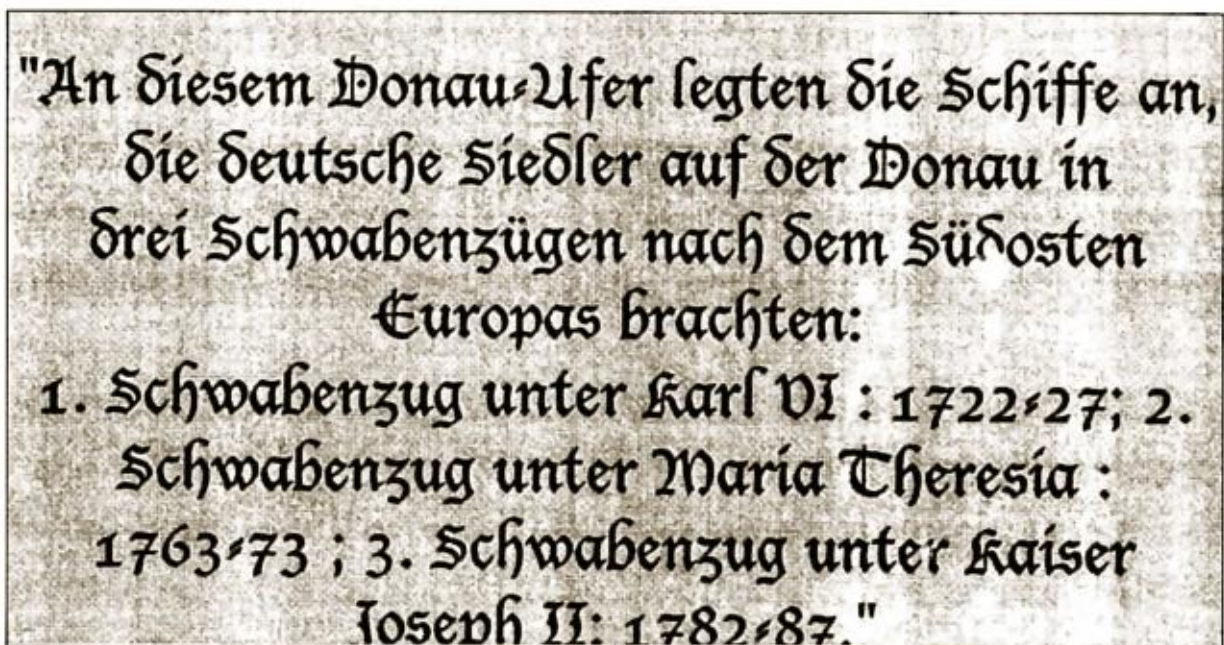 "An diesem Donau-Ufer legten die Schiffe an,
die deutsche Siedler auf der Donau in
drei Schwabenzügen nach dem Südosten
Europas brachten:
1. Schwabenzug unter Karl VI : 1722-27; 2.
Schwabenzug unter Maria Theresia :
1763-73 ; 3. Schwabenzug unter Kaiser
Joseph II: 1782-87."